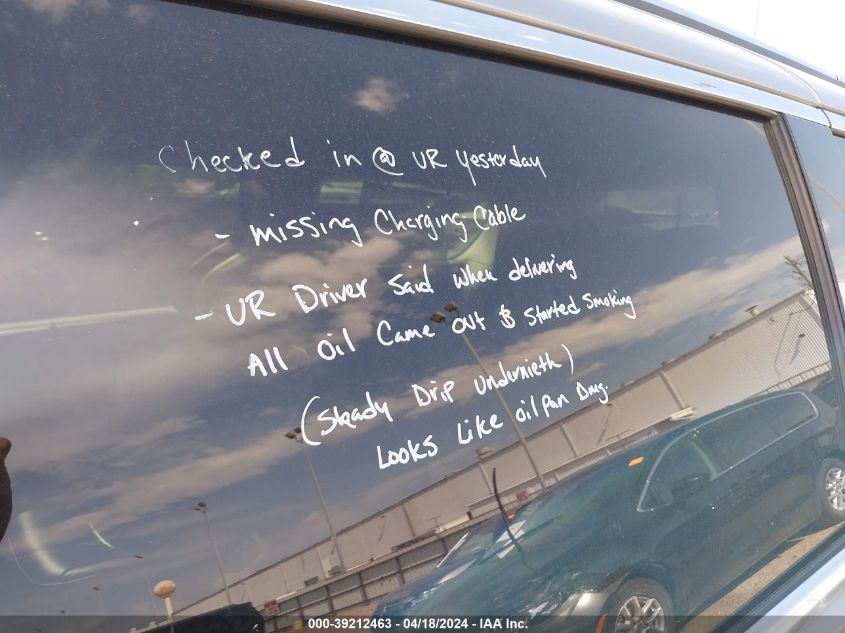 Checked in @ UR Yesterday
- missing Charging Cable
- UR Driver Said when delivering
All Oil Came out & Started Smoking
(Steady Drip undernieth)
Looks Like oil pan Dmg.
000-39212463 - 04/18/2024 - IAA Inc.